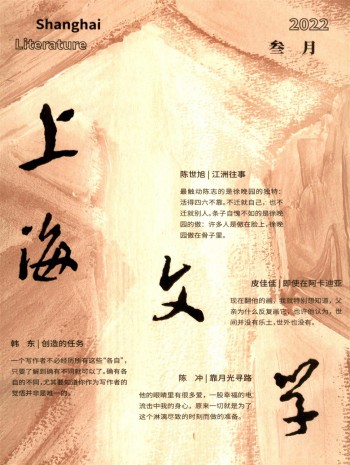 Shanghai
Literature
2022
叁月
上海文学
陈世旭 | 江洲往事
最触动陈志的是徐晚园的独特：
活得四六不靠。不迁就自己，也不
迁就别人。条子自愧不如的是徐晚
园的傲：许多人是傲在脸上，徐晚
园傲在骨子里。
皮佳佳 | 即使在阿卡迪亚
现在翻他的画，我就特别想知道，父
亲为什么反复画它，也许他认为，世
间并没有乐土，世外也没有。
韩 东 | 创造的任务
一个写作者不必经历所有这些“各自”，
只要了解到确有不同就可以了。确有各
自的不同，尤其要知道你作为写作者的
觉悟并非是唯一的。
陈 冲 | 靠月光寻路
他的眼睛里有很多爱，一股幸福的电
流击中我的身心，原来一切就是为了
这个淋漓尽致的时刻而做的准备。